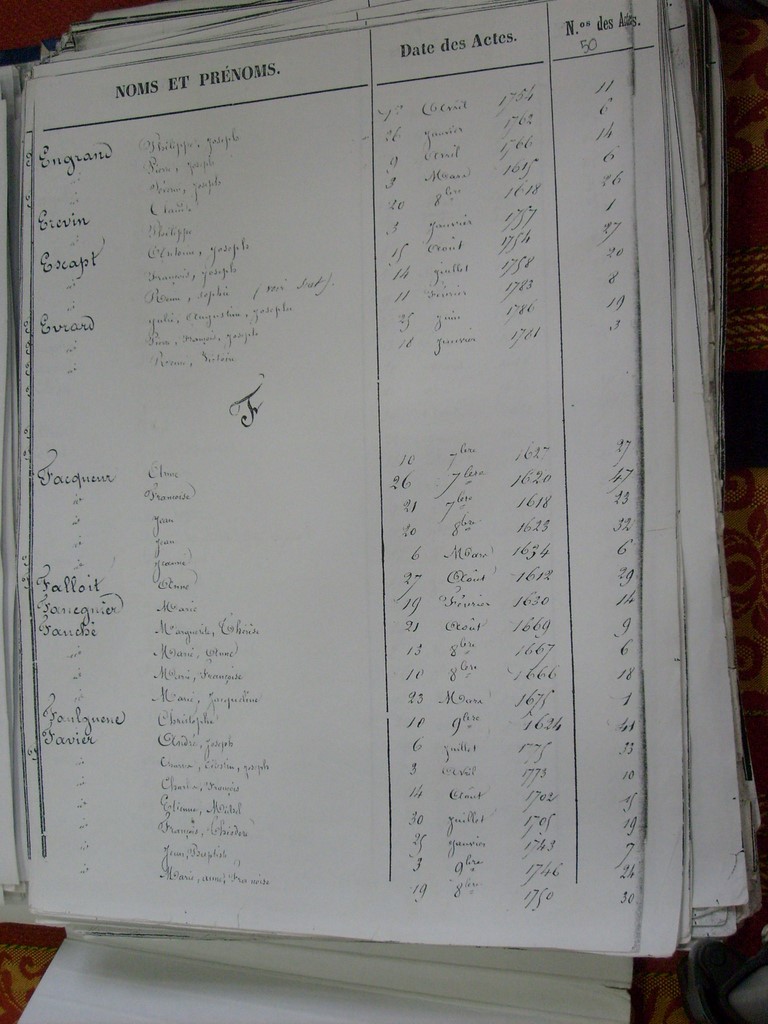 NOMS ET PRÉNOMS. Date des Actes. N.os des Actes.
50
Engrand Philippe, Joseph Avril 1754 11
id Pierre, Joseph 26 Janvier 1762 6
id Joseph 9 Avril 1766 14
Erevin Claude 3 Mars 1615 6
id Philippe 20 8bre 1618 26
Escapt Antoine, Joseph 3 Janvier 1757 1
id François, Joseph 15 Août 1754 27
id Sophie (voir 14 Juillet 1758 20
Evrard Julie, Augustine, Josephe 11 Février 1783 8
id Pierre, François, Joseph 25 Juin 1786 19
id Victoire 18 Janvier 1781 3
F
Facqueur Anne 10 7bre 1627 27
id Françoise 26 7bre 1620 47
id Jean 21 7bre 1618 23
id Jean 20 8bre 1623 32
id Jeanne 6 Mars 1634 6
Falloit Anne 27 Août 1612 29
Fanequier Marie 19 Février 1630 14
Fauché Marguerite, Thérèse 21 Août 1669 9
id Marie, Anne 13 8bre 1667 6
id Marie, Françoise 10 8bre 1666 18
id Marie, Jacqueline 23 Mars 1675 1
Christophe 10 9bre 1624 41
Favier André, Joseph 6 Juillet 1775 33
id Célestin, Joseph 3 Avril 1773 10
id Charles, François 14 Août 1702 15
id Etienne, Michel 30 Juillet 1705 19
id François, Théodore 25 Janvier 1743 7
id Jean, Baptiste 3 9bre 1746 24
id Marie, anne, Françoise 19 8bre 1750 30